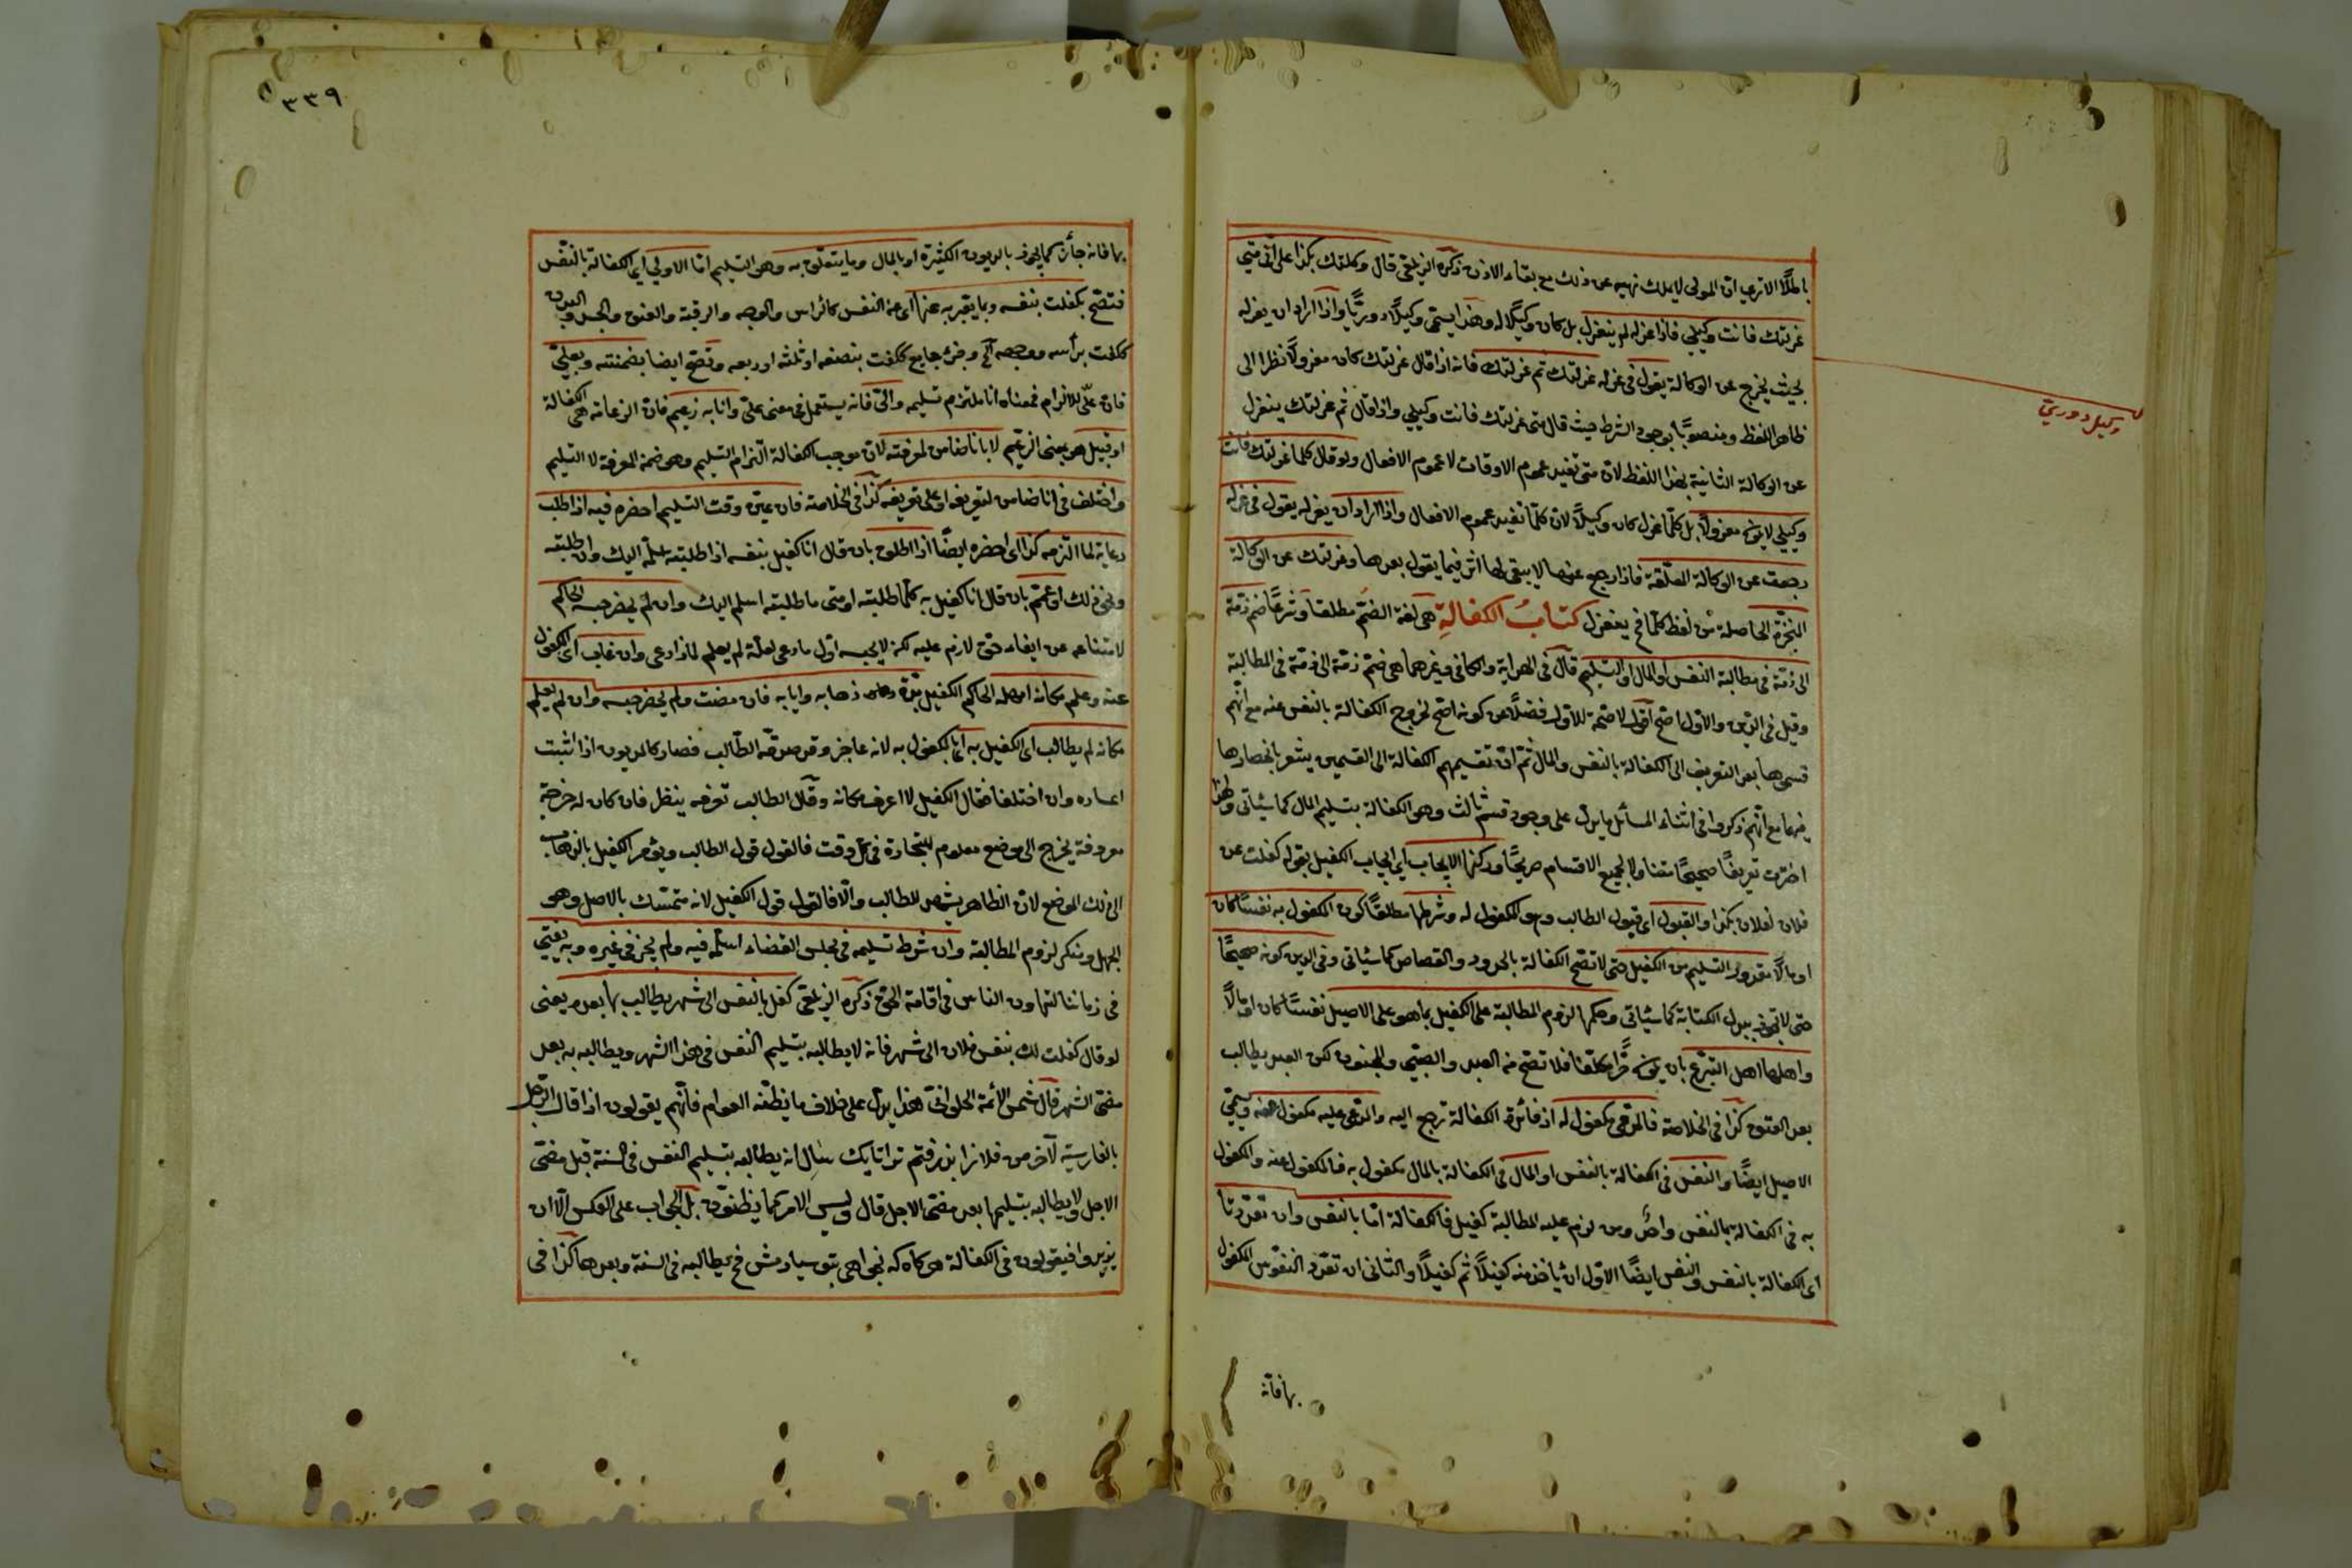 باطلا الا ترى ان المولى لا يملك نهيه عن ذلك مع بقاء الاذن ذكره الزيلعى قال وكلتك بكذا على انى متى
عزلتك فانت وكيلى فاذا عزله لم ينعزل بل كان وكيلا له وهذا يسمى وكيلا دوريا واذا اراد ان يعزله
بحيث يخرج عن الوكالة يقول فى عزله عزلتك ثم عزلتك فانه اذا قال عزلتك كان معزولا نظرا الى
ظاهر اللفظ ومنصوبا بوجود الشرط حيث قال متى عزلتك فانت وكيلى واذا قال ثم عزلتك ينعزل
عن الوكالة الثانية بهذا اللفظ لان متى تفيد عموم الاوقات لا عموم الافعال ولو قال كلما عزلتك فانت
وكيلى لا يكون معزولا بل كلما عزل كان وكيلا لان كلما تفيد عموم الافعال واذا اراد ان يعزله يقول فى عزله
رجعت عن الوكالة المعلقة فاذا رجع عنها لا يبقى لها اثر فيما يقول بعدها وعزلتك عن الوكالة
المنجزة الحاصلة من لفظ كلما فح ينعزل كتاب الكفالة هى لغة الضم مطلقا وشرعا ضم ذمة
الى ذمة فى مطالبة النفس او المال او التسليم قال فى الهداية والكافى وغيرهما هى ضم ذمة الى ذمة فى المطالبة
وقيل فى الدين والاول اصح اقول لا صحة للاول فضلا عن كونه اصح لخروج الكفالة بالنفس عنه مع انهم
قسموها بعد التعريف الى الكفالة بالنفس والمال ثم ان تقسيمهم الكفالة الى القسمين يشعر بانحصارها
فيهما مع انهم ذكروا فى اثناء المسائل ما يدل على وجود قسم ثالث وهو الكفالة بتسليم المال كما سياتى ولهذا
اخترت تعريفا صحيحا متناولا لجميع الاقسام صريحا وركنها الايجاب اى ايجاب الكفيل بقوله كفلت عن
فلان لفلان بكذا والقبول اى قبول الطالب وهو المكفول له وشرطها مطلقا كون المكفول به نفسا كان
او مالا مقدور التسليم من الكفيل حتى لا تصح الكفالة بالحدود والقصاص كما سياتى وفى الدين كونه صحيحا
حتى لا تجوز ببدل الكتابة كما سياتى وحكمها لزوم المطالبة على الكفيل بما هو على الاصيل نفسا كان او مالا
واهلها اهل التبرع بان يكون حرا مكلفا فلا تصح من العبد والصبى والمجنون لكن العبد يطالب
بعد العتق كذا فى الخلاصة فالمدعى مكفول له اذ فائدة الكفالة ترجع اليه والمدعى عليه مكفول عنه ويسمى
الاصيل ايضا والنفس فى الكفالة بالنفس او المال فى الكفالة بالمال مكفول به فالمكفول عنه والمكفول
به فى الكفالة بالنفس واحد ومن لزم عليه المطالبة كفيل فالكفالة اما بالنفس وان تعددتا
اى الكفالة بالنفس والنفس ايضا الاول ان ياخذ منه كفيلا ثم كفيلا والثانى ان تعدد النفوس المكفول
بها فانه
وكيل دورى
٣٣٩
بها فانه جائز كما يجوز بالديون الكثيرة او بالمال وما يتعلق به وهو التسليم اما الاولى اى الكفالة بالنفس
فتصح بكفلت بنفسه وبما يعبر به عنها اى عن النفس كالرأس والوجه والرقبة والعنق والجسد والبدن
ككفلت برأسه ووجهه الخ وجزء شايع ككفلت بنصفه او ثلثه او ربعه وتصح ايضا بضمنته وبعلى
فان على للالزام فمعناه انا ملتزم تسليمه والى فانه يستعمل فى معنى على وانا به زعيم فان الزعامة هى الكفالة
او قبيل هو بمعنى الزعيم لا بانا ضامن لمعرفته لان موجب الكفالة التزام التسليم وهو ضمن المعرفة لا التسليم
واختلف فى انا ضامن لتعريفه او على تعريفه كذا فى الخلاصة فان عين وقت التسليم احضره فيه اذا طلب
رعاية لما التزمه كذا اى احضره ايضا اذا اطلق بان قال انا كفيل بنفسه اذا طلبته سلمه اليك وان طلبته
ونحو ذلك او عمم بان قال انا كفيل به كلما طلبته او متى ما طلبته اسلم اليك وان لم يحضر حبسه الحاكم
لامتناعه عن ايفاء حق لازم عليه لكن لا يحبسه اول ما دعى لعله لم يعلم لماذا دعى وان غاب اى المكفول
عنه وعلم مكانه امهله الحاكم الكفيل مدة ذهابه وايابه فان مضت ولم يحضر حبسه وان لم يعلم
مكانه لم يطالب اى الكفيل به اى بالمكفول به لانه عاجز وقد صدقه الطالب فصار كالمديون اذا ثبت
اعساره وان اختلفا فقال الكفيل لا اعرف مكانه وقال الطالب تعرفه ينظر فان كان له خرجة
معروفة يخرج الى موضع معلوم للتجارة فى كل وقت فالقول قول الطالب ويؤمر الكفيل بالذهاب
الى ذلك الموضع لان الظاهر يشهد للطالب والا فالقول قول الكفيل لانه متمسك بالاصل وهو
الجهل ومنكر لزوم المطالبة وان شرط تسليمه فى مجلس القضاء سلمه فيه ولم يجز فى غيره وبه يفتى
فى زماننا لتهاون الناس فى اقامة الحق ذكره الزيلعى كفل بالنفس الى شهر يطالب بها بعده يعنى
لو قال كفلت لك بنفس فلان الى شهر فانه لا يطالبه بتسليم النفس فى هذا الشهر ويطالبه به بعد
مضى الشهر قال شمس الائمة الحلوانى هذا يدل على خلاف ما يظنه العوام فانهم يقولون اذا قال الرجل
بالفارسية لآخر من فلانرا بذرفتم ترا تا يك سال انه يطالبه بتسليم النفس فى السنة قبل مضى
الاجل ولا يطالبه بتسليمها بعد مضى الاجل قال وليس الامر كما يظنون بل الجواب على العكس الا ان
يزيدوا فيقولون فى الكفالة هركاه كه نخواهى بتو سپارمش فح يطالبه فى السنة وبعدها كذا فى